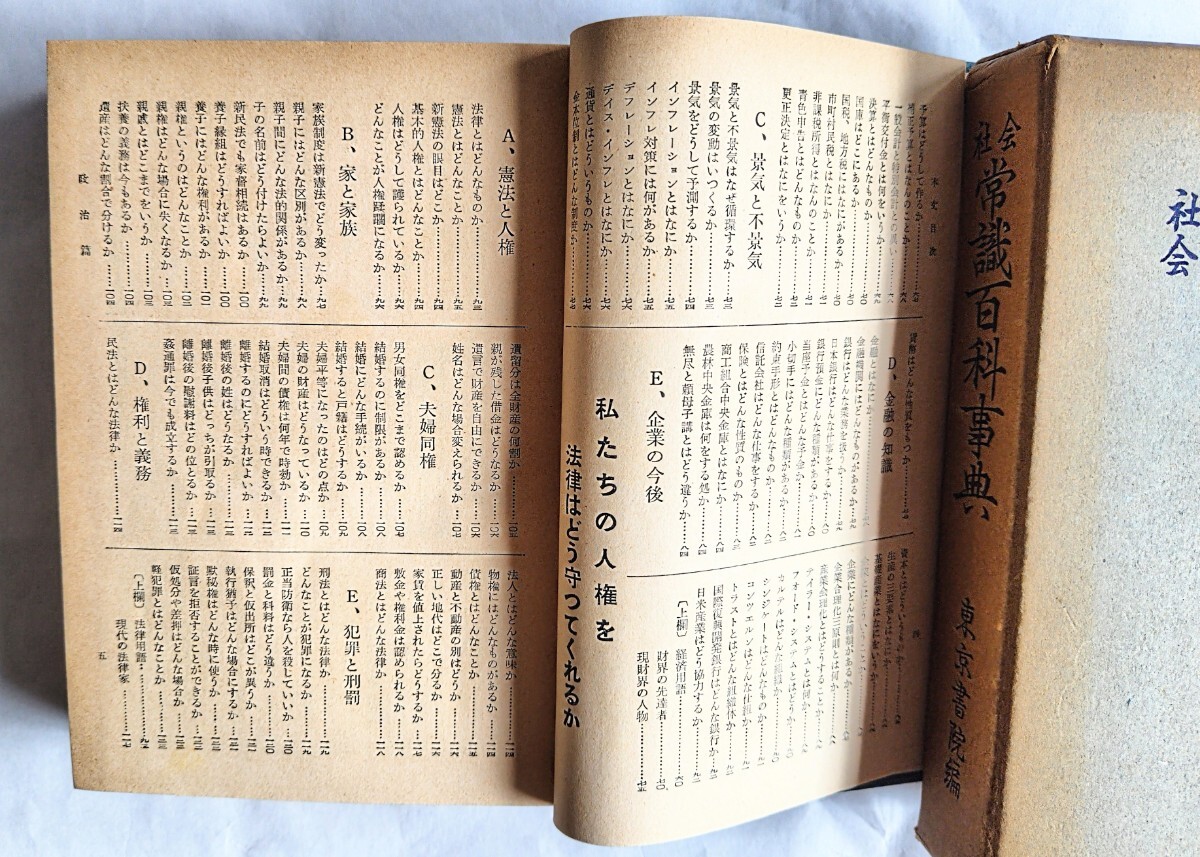 社会
社会 常識百科事典 東京書院編
本文目次
予算はどうして作るか……六七
補正予算とはなんのことか……六八
一般会計と特別会計との違い……六八
平衡交付金とは何をいうか……六九
決算とはどんなものか……七〇
国庫はどこにあるか……七〇
国税、地方税にはなにがあるか……七〇
市町村民税とはなにか……七一
非課税所得とはなんのことか……七一
青色申告とはどんなものか……七二
更正決定とはなにをいうか……七二
C、景気と不景気
景気と不景気はなぜ循環するか……七三
景気の変動はいつくるか……七三
景気をどうして予測するか……七四
インフレーションとはなにか……七五
インフレ対策には何があるか……七五
デフレーションとはなにか……七六
デイス・インフレとはなにか……七六
通貨とはどういうものか……七六
金本位制とはどんな制度か……七七
貨幣はどんな性質をもつか……七七
D、金融の知識
金融とはなにか
金融機関にはどんなものがあるか……七九
銀行はどんな業務を扱うか……七九
日本銀行はどんな仕事をするか……八〇
銀行預金にどんな種類があるか……八〇
当座預金とはどんな預金か……八一
小切手にはどんな種類があるか……八一
約束手形とはどんなものか……八二
信託会社はどんな仕事をするか……八二
保険とはどんな性質のものか……八三
商工組合中央金庫とはなにか……八四
農林中央金庫は何をする処か……八四
無尽と頼母子講とはどう違うか……八四
E、企業の今後
資本とはどういうものか
生産の三要素とはなにか
基礎産業とはなにをいうか
企業にどんな種類があるか
企業合理化三原則とは何か
産業合理化とはどうすることか
テイラー・システムとは何か
フォード・システムとはどうか
カルテルとはどんな組織か
シンジケートはどんなものか
コンツエルンはどんな仕組か
トラストとはどんな組織体か……九一
国際復興開発銀行はどんな銀行か……九二
日米産業はどう協力するか……九二
〔上欄〕 経済用語……六〇
財界の先達者……七〇
現財界の人物……七五
私たちの人権を
法律はどう守つてくれるか
A、憲法と人権
法律とはどんなものか……九三
憲法とはどんなことか……九五
新憲法の眼目はどこか……九五
基本的人権とはどんなことか……九四
人権はどうして護られているか……九四
どんなことが人権蹂躙になるか……九六
B、家と家族
家族制度は新憲法でどう変つたか……九七
親子にはどんな区別があるか……九八
親子間にどんな法的関係があるか……九八
子の名前はどう付けたらよいか……九九
新民法でも家督相続はあるか……一〇〇
養子縁組はどうすればよいか……一〇〇
養子にはどんな権利があるか……一〇一
親権というのはどんなことか……一〇二
親権はどんな場合に失くなるか……一〇三
親族とはどこまでをいうか……一〇三
扶養の義務は今もあるか……一〇四
遺産はどんな割合で分けるか……一〇四
遺留分は全財産の何割か……一〇五
親が残した借金はどうなるか……一〇六
遺言で財産を自由にできるか……一〇六
姓名はどんな場合変えられるか……一〇七
C、夫婦同権
男女同権をどこまで認めるか……一〇七
結婚するのに制限があるか……一〇八
結婚にどんな手続がいるか……一〇八
結婚すると戸籍はどうするか……一〇九
夫婦平等になつたのはどの点か……一〇九
夫婦の財産はどうなつているか……一一〇
夫婦間の債権は何年で時効か……一一一
結婚取消はどういう時できるか……一一一
離婚するのにどうすればよいか……一一一
離婚後の姓はどうなるか……一一二
離婚後子供はどつちが引取るか……一一三
離婚後の慰謝料はどの位とるか……一一三
姦通罪は今でも成立するか……一一三
D、権利と義務
民法とはどんな法律か……一一四
法人とはどんな意味か……一一四
物権にはどんなものがあるか……一一四
債権とはどんなことか……一一五
動産と不動産の別はどうか……一一六
正しい地代はどこで分るか……一一六
家賃を値上されたらどうするか……一一七
敷金や権利金は認められるか……一一八
商法はどんな法律か……一一八
E、犯罪と刑罰
刑法とはどんな法律か……一一九
どんなことが犯罪になるか……一一九
正当防衛なら人を殺していいか……一二〇
罰金と科料はどう違うか……一二〇
保釈と仮出所はどこが異うか……一二一
執行猶予はどんな場合にするか……一二一
黙秘権はどんな時に使うか……一二二
証言を拒否することができるか……一二二
仮処分や差押はどんな場合か……一二三
軽犯罪とはどんなことか……一二三
〔上欄〕 法律用語……九三
現代の法律家……一一七
政治篇
五